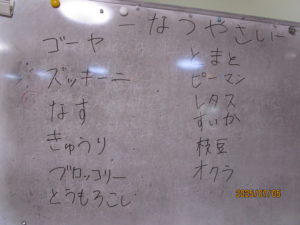 ーなつやさいー
ゴーヤ
ズッキーニ
なす
きゅうり
ブロッコリー
とうもろこし
とまと
ピーマン
レタス
すいか
枝豆
オクラ